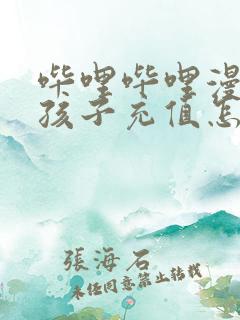 哔哩哔哩漫
孩子充值怎
張海石
未经同意禁止转载